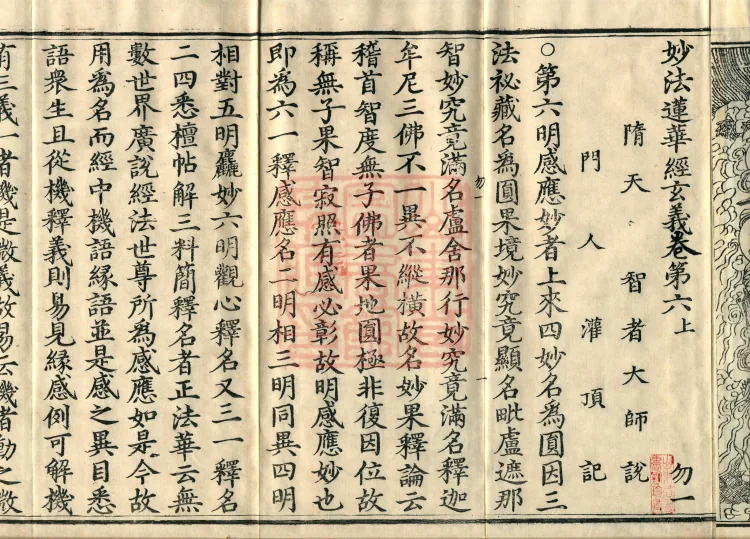 妙法蓮華經玄義卷第六上 勿一
隋天 智者大師說
門人灌頂記
○第六明感應妙者上來四妙名為圓因三
法祕藏名為圓果境妙究竟顯名毗盧遮那
智妙究竟滿名盧舍那行妙究竟滿名釋迦
勿一
牟尼三佛不一異不縱橫故名妙果釋論云
稽首智度無子佛者果地圓極非復因位故
稱無子果智寂照有感必彰故明感應妙也
即為六一釋感應名二明相三明同異四明
相對五明麤妙六明觀心釋名又三一釋名
二四悉檀帖解三料簡釋名者正法華云無
數世界廣說經法世尊所為感應如是今故
用為名而經中機語緣語並是感之異目悉
語眾生且從機釋義則易見緣感例可解機
有三義一者機是微義故易云機者動之微